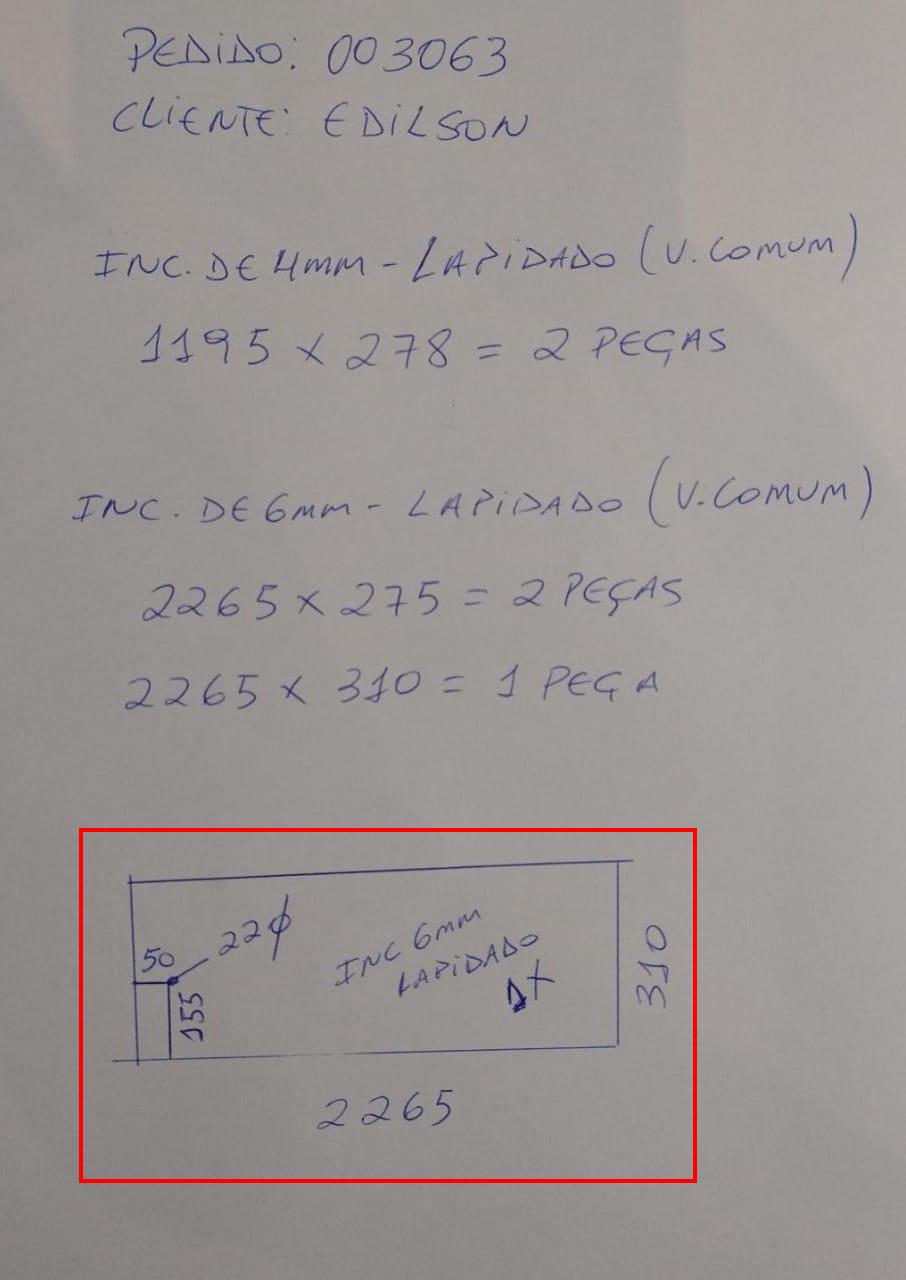 PEDIDO: 003063
CLIENTE: EDILSON
INC. DE 4mm - LAPIDADO (V. COMUM)
1195 x 278 = 2 PEÇAS
INC. DE 6mm - LAPIDADO (V. COMUM)
2265 x 275 = 2 PEÇAS
2265 x 310 = 1 PEÇA
22ϕ
50
155
INC 6mm
LAPIDADO
1X
310
2265